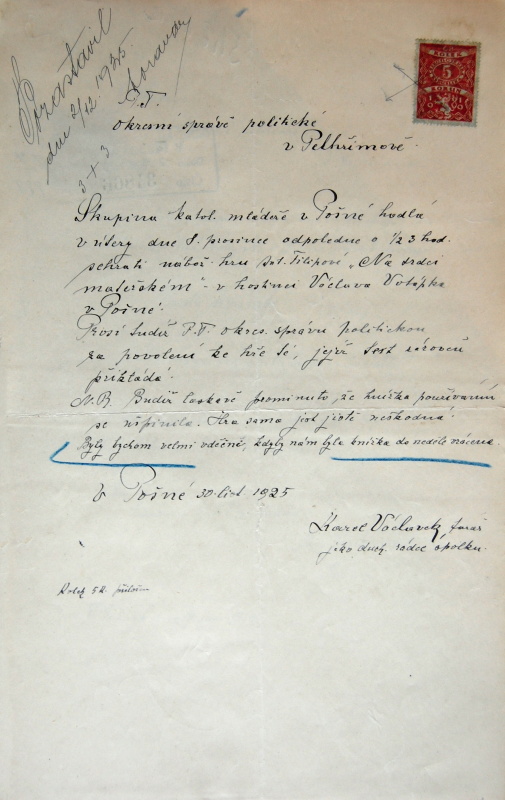 dne 2/12. 1925.
3 + 3
KOLEK
5
KORUN
P.T.
okresní správě politické
v Pelhřimově.
Skupina katol. mládeže v Pošné hodlá
v úterý dne 8. prosince odpoledne o 1/2 3 hod.
sehrati nábož. hru Filipové „Na srdci
mateřském" v hostinci Václava Votápka
v Pošné.
Prosí tudíž P.T. okres. správu politickou
za povolení ke hře té, jejíž text zároveň
přikládá.
N.B. Budiž laskavě prominuto, že knížka používáním
se ušpinila. Hra sama jest jistě neškodná.
Byly bychom velmi vděčné, kdyby nám byla knížka do neděle vrácena.
V Pošné 30. list. 1925
Karel Václavek, farář
jako duch. rádce spolku.
Kolek 5 K